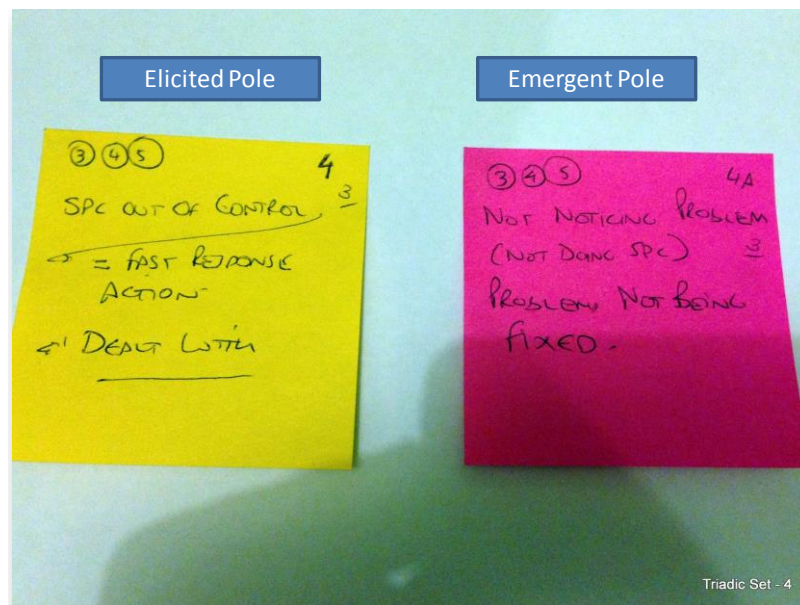 Elicited Pole
Emergent Pole
3 4 5
4
SPC OUT OF CONTROL
3
= FAST RESPONSE
ACTION
DEALT WITH
3 4 5
4A
NOT NOTICING PROBLEM
(NOT DOING SPC)
3
PROBLEM NOT BEING
FIXED.
Triadic Set - 4